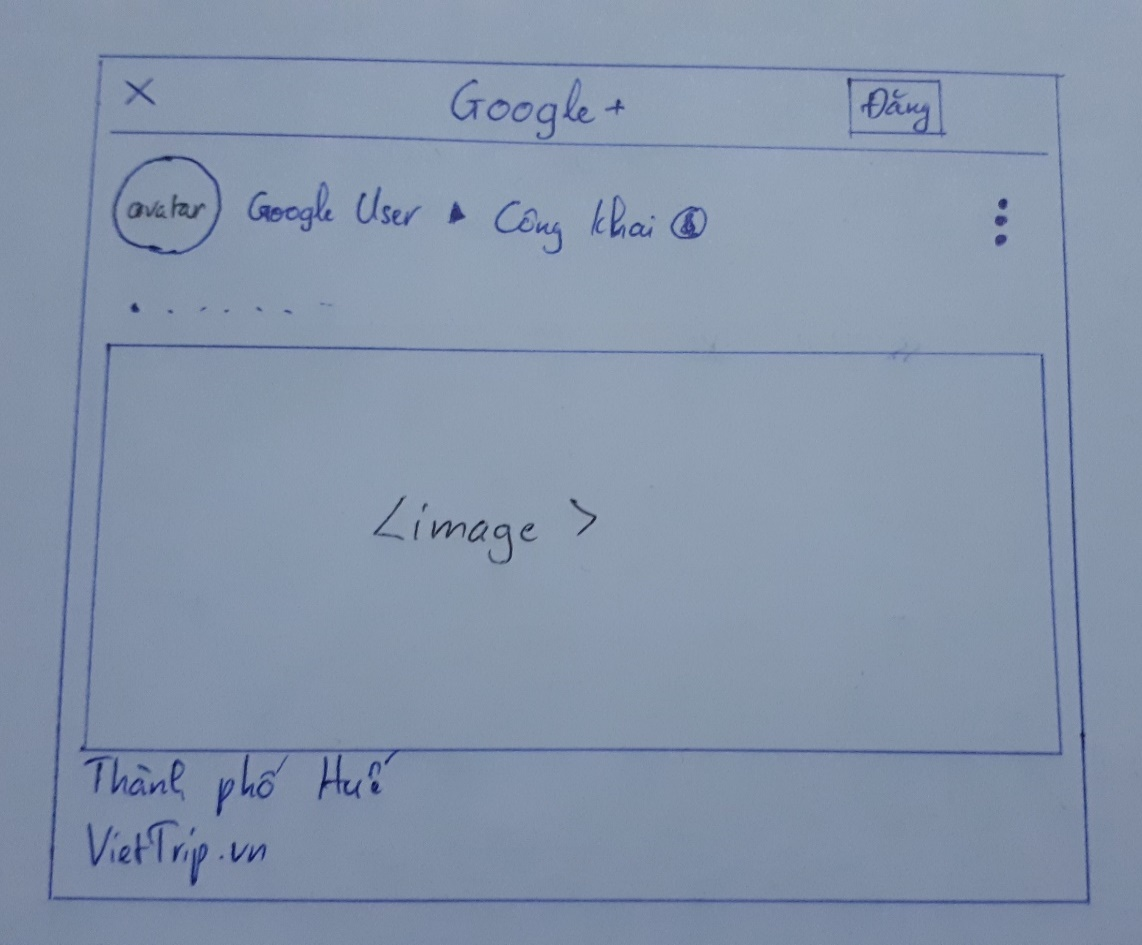 X Google+ Đăng
avatar Google User ▸ Công khai
<image>
Thành phố Huế
VietTrip.vn